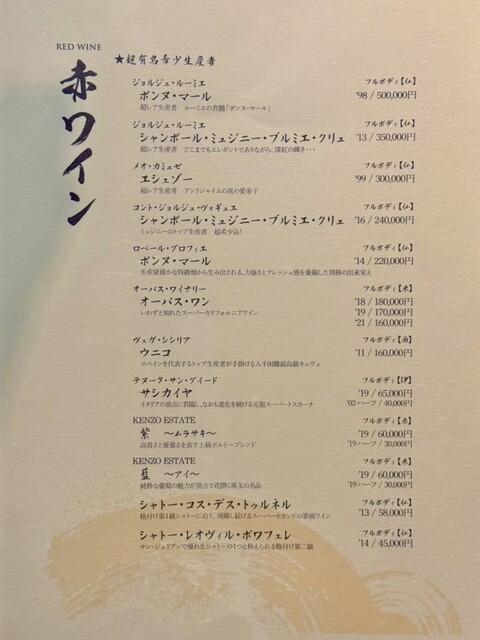 RED WINE
赤ワイン
★超有名希少生産者
ジョルジュ・ルーミエ フルボディ【仏】
ボンヌ・マール '98 / 500,000円
超レア生産者 ルーミエの真髄「ボンヌ・マール」
ジョルジュ・ルーミエ フルボディ【仏】
シャンボール・ミュジニー・プルミエ・クリュ '13 / 350,000円
超レア生産者 どこまでもエレガントでありながら、深紅の輝き・・・
メオ・カミュゼ フルボディ【仏】
エシェゾー '99 / 300,000円
超レア生産者 アンリジャイエの真の愛弟子
コント・ジョルジュ・ヴォギュエ フルボディ【仏】
シャンボール・ミュジニー・プルミエ・クリュ '16 / 240,000円
ミュジニーのトップ生産者 超希少品!
ロベール・グロフィエ フルボディ【仏】
ボンヌ・マール '14 / 220,000円
生産量僅かな特級畑から生み出される、力強さとフレッシュ感を兼備した別格の出来栄え
オーパス・ワイナリー フルボディ【米】
オーパス・ワン '18 / 180,000円
いわずと知れたスーパーカリフォルニアワイン '19 / 170,000円
'21 / 160,000円
ヴェガ・シシリア フルボディ【西】
ウニコ '11 / 160,000円
スペインを代表するトップ生産者が手掛ける入手困難最高級キュヴェ
テヌータ・サン・グイード フルボディ【伊】
サシカイヤ '19 / 65,000円
イタリアの頂点に君臨し、なおも進化を続ける元祖スーパートスカーナ '02ハーフ / 40,000円
KENZO ESTATE フルボディ【米】
紫 〜ムラサキ〜 '19 / 60,000円
高貴さと優雅さを表す上級ボルドーブレンド '19ハーフ / 30,000円
KENZO ESTATE フルボディ【米】
藍 〜アイ〜 '19 / 60,000円
純粋な葡萄の魅力が頂点で花開く珠玉の名品 '19ハーフ / 30,000円
シャトー・コス・デス・トゥルネル フルボディ【仏】
格付け第1級シャトーに迫り、飛躍し続けるスーパーセカンドの筆頭ワイン '13 / 58,000円
シャトー・レオヴィル・ポワフェレ フルボディ【仏】
サン・ジュリアンで優れたシャトーの1つと称えられる格付け第二級 '14 / 45,000円